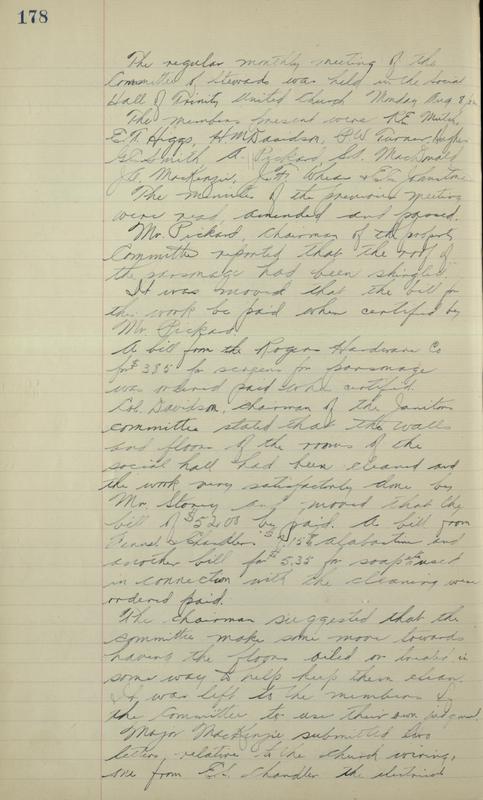 178
The regular monthly meeting of the
Committee of Stewards was held in the Social
Hall of Trinity United Church Monday Aug 8,
The members present were
E.T. Higgs, H.M. Davidson, P.W. Turner, Hughes
G.C. Smith, Pickard, MacDonald
MacKenzie,
The Minutes of the previous meeting
were read, amended and passed.
Mr. Pickard, Chairman of the property
Committee reported that the roof of
the parsonage had been shingled.
It was moved that the bill for
this work be paid when certified by
Mr. Pickard
A bill from the Rogers Hardware Co
for $3.85 for screens for parsonage
was ordered paid when certified.
Col. Davidson, chairman of the Janitors
committee stated that the walls
and floors of the rooms of the
social hall had been cleaned and
the work very satisfactorily done by
Mr. Storey and moved that the
bill of $52.00 be paid. A bill from
Fennel & Chandler alabastine and
another bill for $5.35 for soap etc used
in connection with the cleaning were
ordered paid.
The chairman suggested that the
committee make some move towards
having the floors oiled or treated in
some way to help keep them clean.
It was left to the members of
the Committee to use their own judgment.
Major MacKenzie submitted two
letters, relative to the church wiring,
one from Chandler the electrical